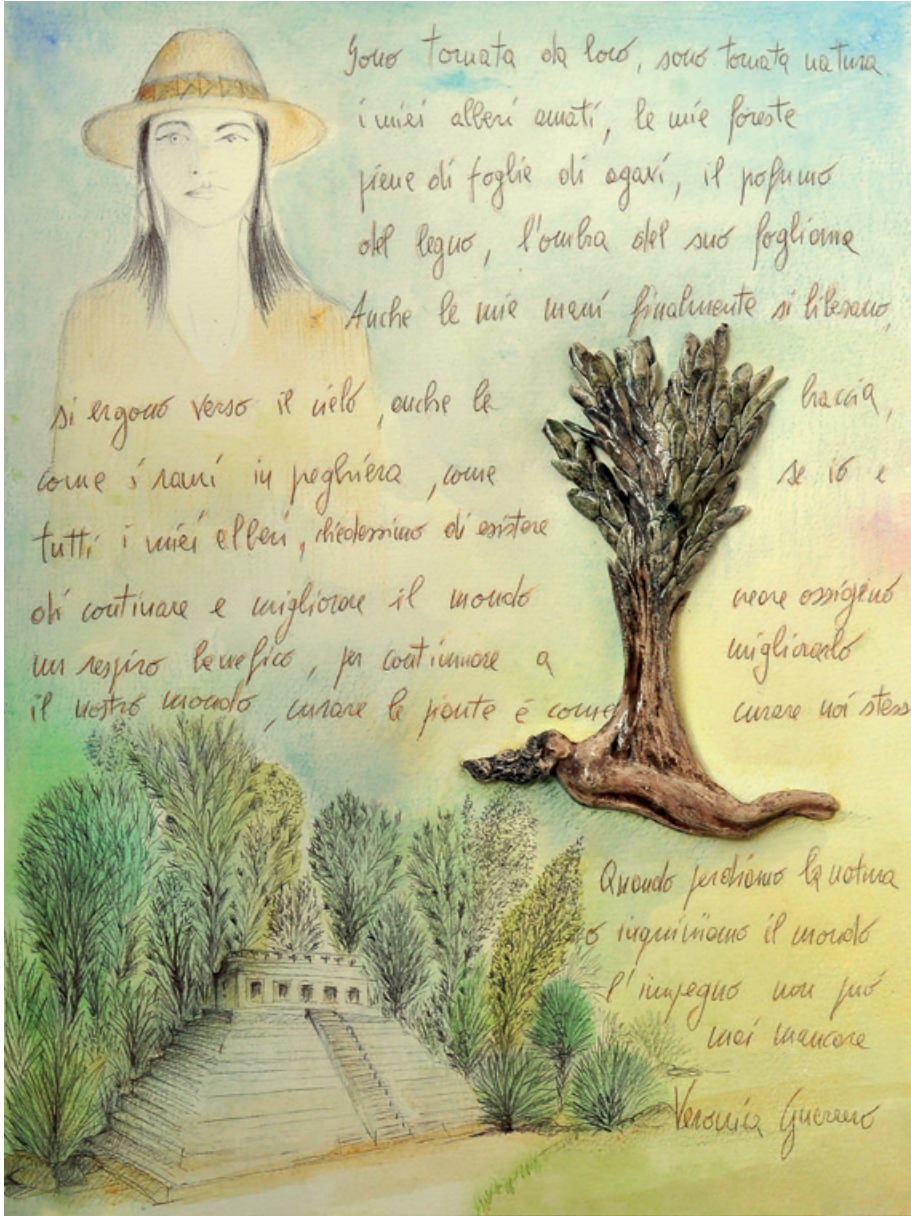 Sono tornata da loro, sono tornata natura
i miei alberi amati, le mie foreste
piene di foglie di agavi, il pofumo
del legno, l'ombra del suo fogliame
Anche le mie mani finalmente si liberano,
si ergono verso il cielo, anche le braccia,
come i rami in preghiera, come se io e
tutti i miei alberi, chiedessimo di esistere
di continuare e migliorare il mondo creare ossigeno
un respiro benefico, per continuare a migliorarlo
il nostro mondo, curare le piante è come curare noi stess
Quando perdiamo la natura
o inquiniamo il mondo
l'impegno non può
mai mancare
Veronica Guerrero